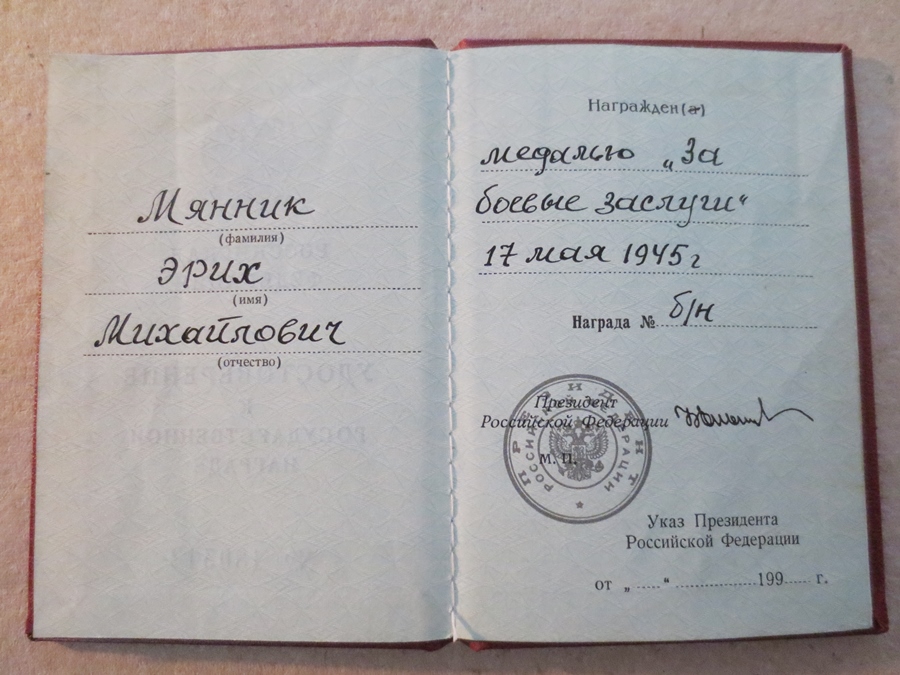 Мянник
(фамилия)
Эрих
(имя)
Михайлович
(отчество)
Награжден(а)
медалью „За
боевые заслуги“
17 мая 1945 г
Награда № б/н
Президент
Российской Федерации
М. П.
ПРЕЗИДЕНТ
РОССИЙСКОЙ ФЕДЕРАЦИИ
Указ Президента
Российской Федерации
от „ ..... “ .................. 199...... г.
УДОСТОВЕРЕНИЕ
К
ГОСУДАРСТВЕННОЙ
НАГРАДЕ